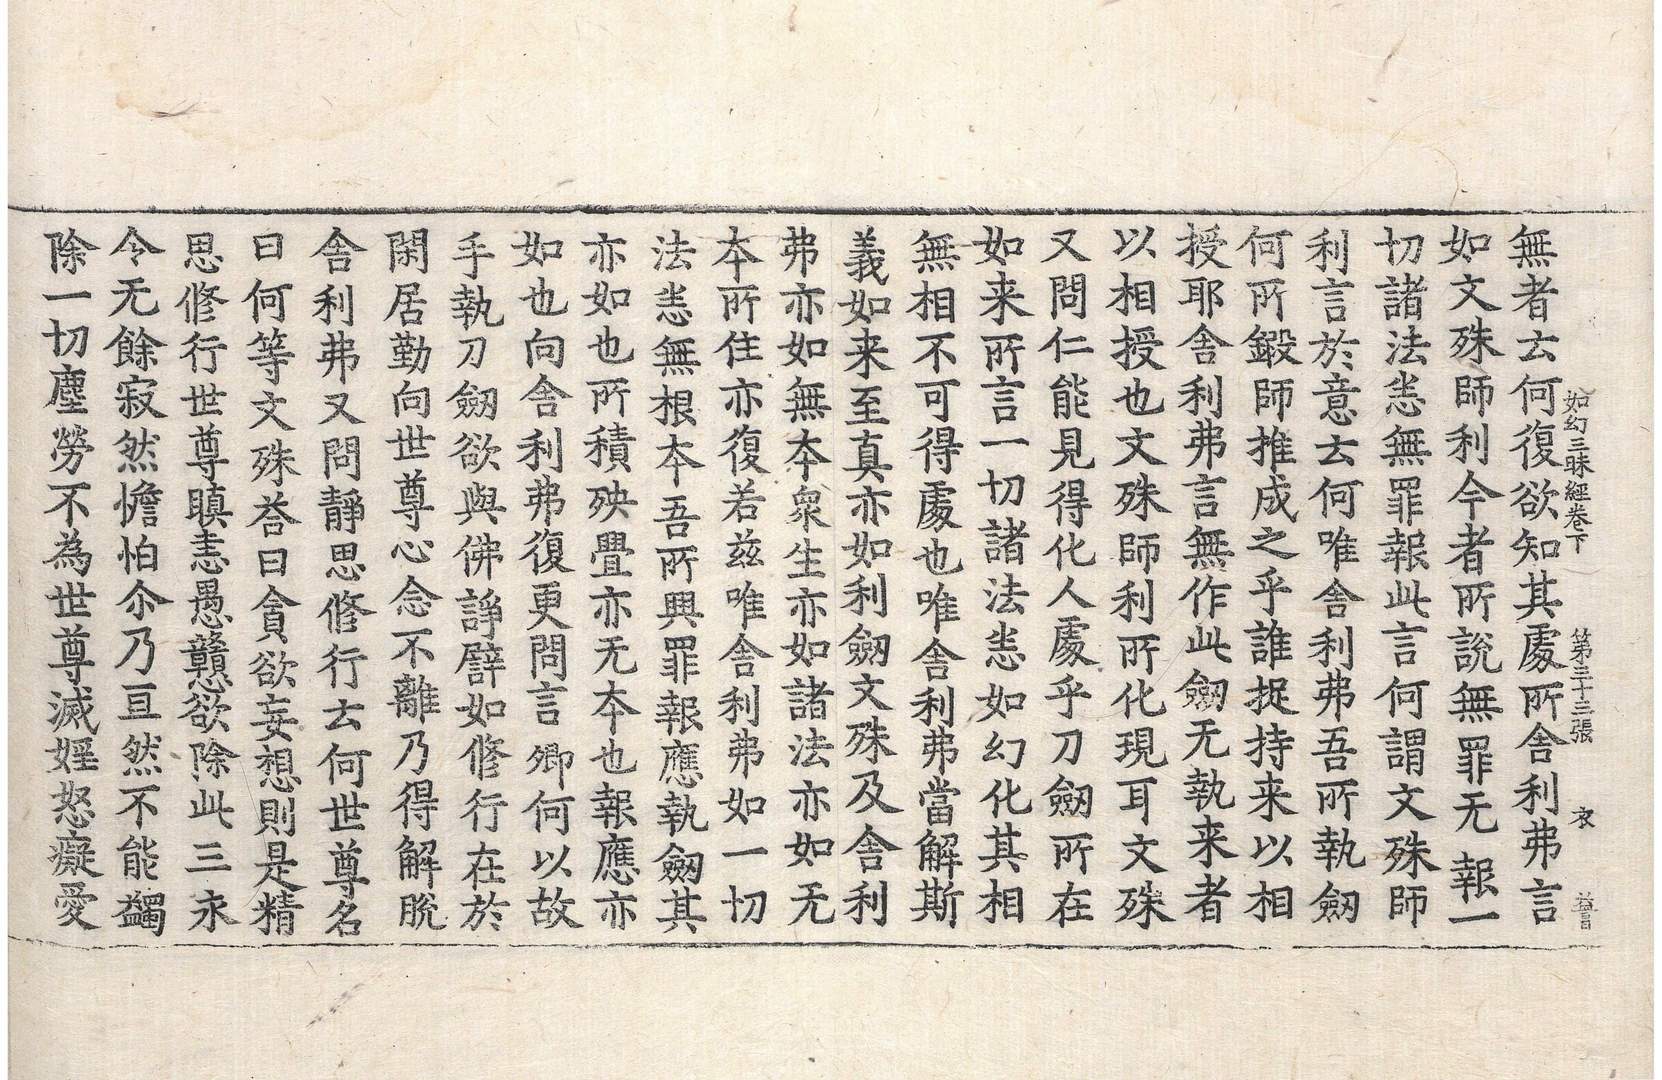 如幻三昧經卷下　第三十三張　衣
無者去何復欲知其處所舍利弗言
如文殊師利今者所說無罪无報一
切諸法恙無罪報此言何謂文殊師
利言於意云何唯舍利弗吾所執劒
何所鍛師推成之乎誰捉持来以相
授耶舍利弗言無作此劒无執来者
以相授也文殊師利所化現耳文殊
又問仁能見得化人處乎刀劒所在
如来所言一切諸法恙如幻化其相
無相不可得處也唯舍利弗當解斯
義如来至真亦如利劒文殊及舍利
弗亦如無夲衆生亦如諸法亦如无
夲所住亦復若兹唯舍利弗如一切
法恙無根夲吾所興罪報應執劒其
亦如也所積殃舋亦无夲也報應亦
如也向舍利弗復更問言卿何以故
手執刀劒欲與佛諍譬如修行在於
閑居勤向世尊心念不離乃得解脫
舍利弗又問靜思修行云何世尊名
曰何等文殊荅曰貪欲妄想則是精
思修行世尊瞋恚愚戇欲除此三永
令无餘寂然憺怕尒乃亘然不能蠲
除一切塵勞不為世尊滅婬怒癡愛